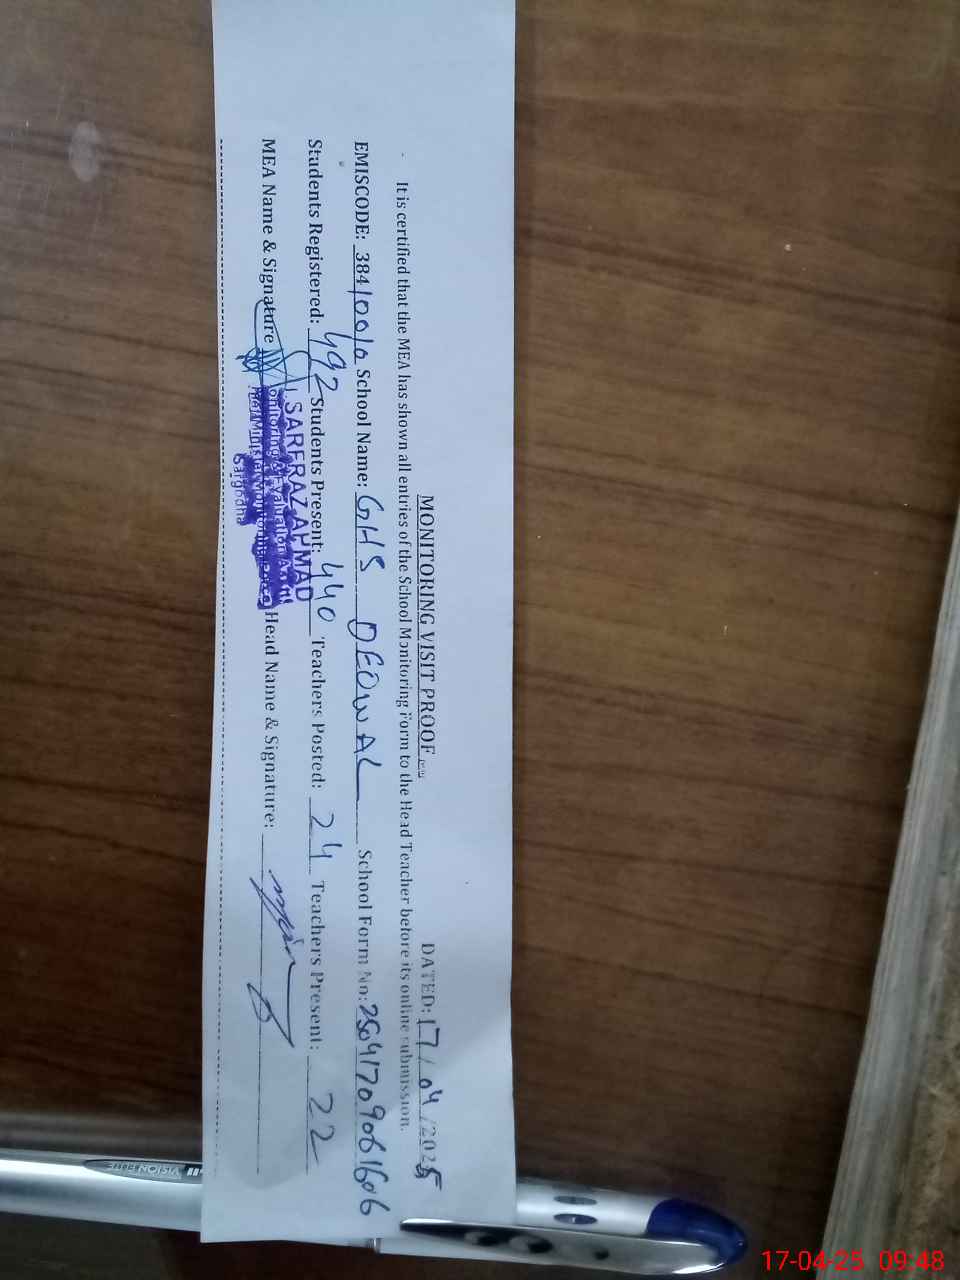 MONITORING VISIT PROOF
DATED: 17/04/2025
It is certified that the MEA has shown all entries of the School Monitoring Form to the Head Teacher before its online submission.
EMISCODE: 38410010 School Name: GHS DEOWAL School Form No: 25041709061606
Students Registered: 492 Students Present: 440 Teachers Posted: 24 Teachers Present: 22
MEA Name & Signature Head Name & Signature:
SARFRAZ AHMAD
Monitoring & Evaluation Asstt
Chief Minister Monitoring Force
Sargodha
VISION ELITE
17-04-25 09:48